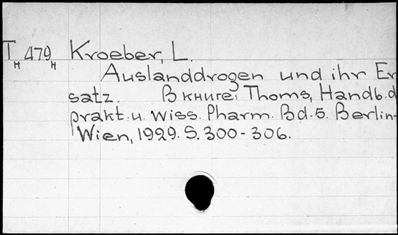 T 479 Kroeber, L.
н н
Auslanddrogen und ihr Er
satz. В книге: Thoms, Handb. d
prakt. u. Wiss. Pharm. Bd. 5. Berlin-
Wien, 1929. S. 300-306.